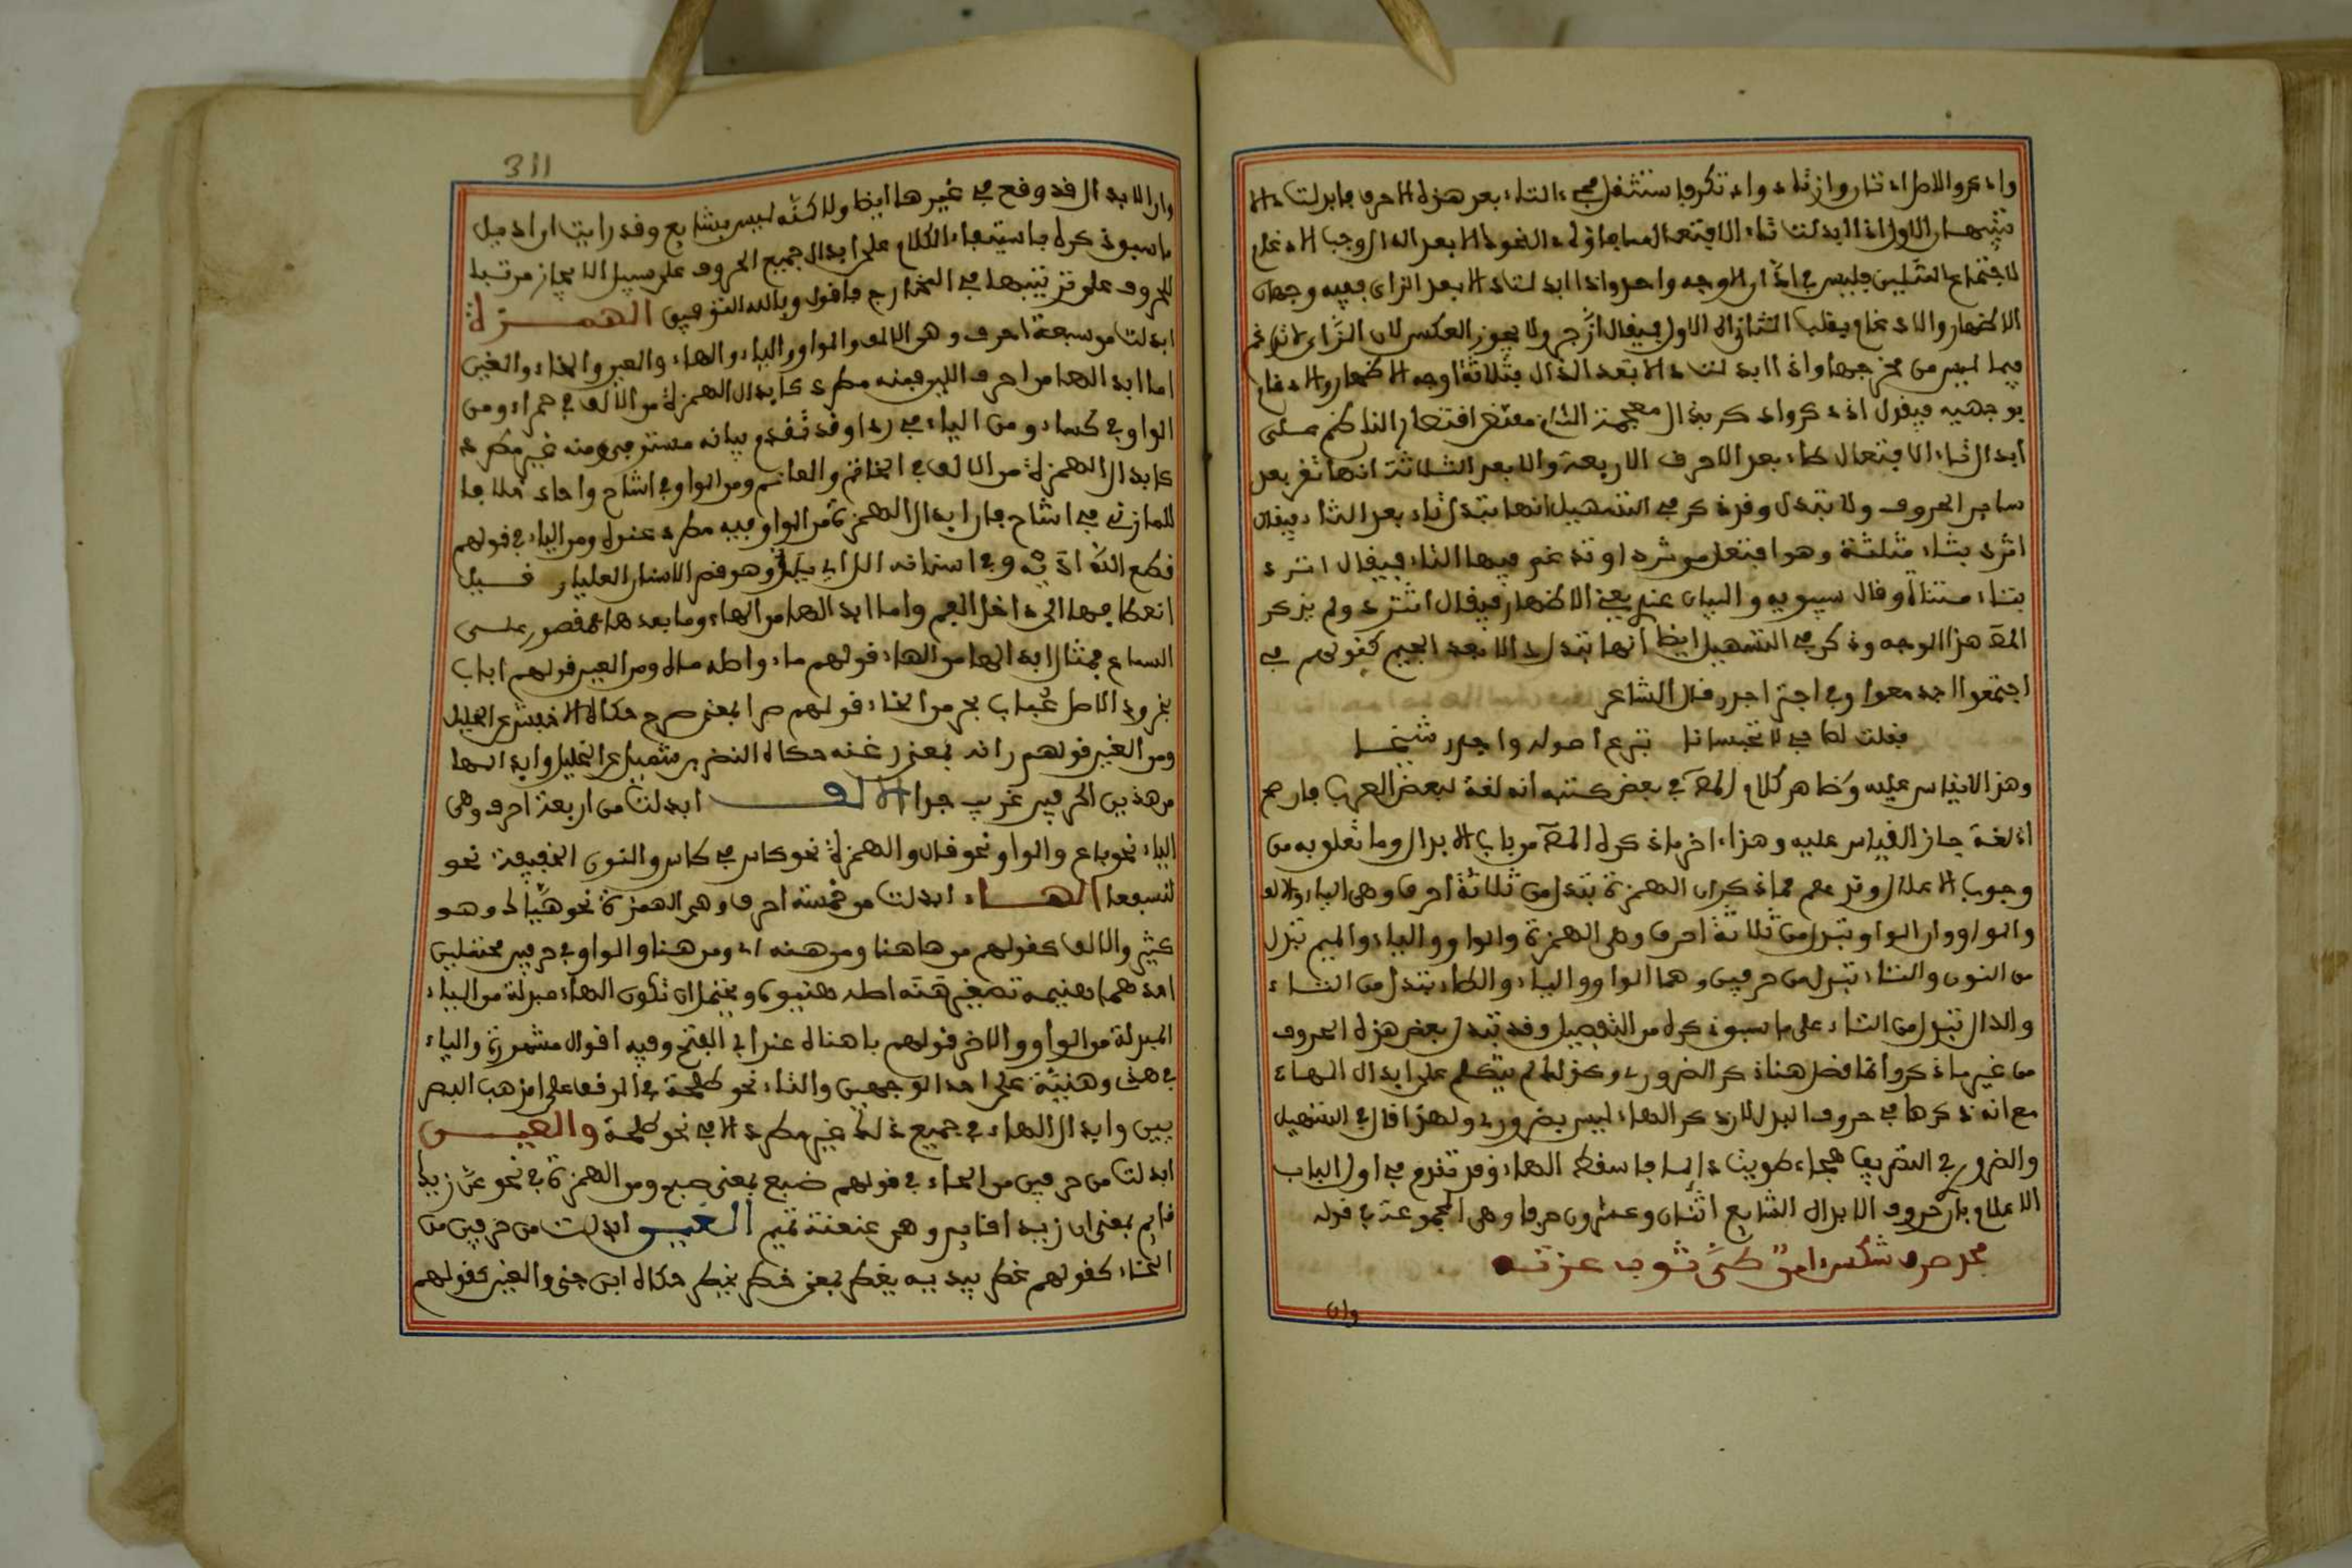 وادعو والاصل ادتان وازتاد واذتكر فاستثقل مجيء التاء بعد هذه الاحرف فابدلت دالا
تنبيهان الاول اذا ابدلت تاء الافتعال دالا بعد الدال وجب الادغام
لاجتماع المثلين فليس في ادّان الا وجه واحد واذا ابدلت دالا بعد الزاي ففيه وجهان
الاظهار والادغام بقلب الثاني الى الاول فيقال ازّجر ولا يجوز العكس لان الزاي لا تدغم
فيما ليس من مخرجها واذا ابدلت دالا بعد الذال فثلاثة اوجه الاظهار والادغام
بوجهيه فيقول اذدكر وادكر بذال معجمة الثاني مقتضى اقتصار الناظم على
ابدال تاء الافتعال طاء بعد الاحرف الاربعة ودالا بعد الثلاثة انها تقر بعد
ساير الحروف ولا تبدل وقد ذكر في التسهيل انها تبدل ثاء بعد الثاء فيقال
اثرد بثاء مثلثة وهو افتعل من ثرد او تدغم فيها الثاء فيقال اترد
بتاء مثناة وقال سيبويه والبيان عندي يعني الاظهار فيقال اثترد ولم يذكر
المص هذا الوجه وذكر في التسهيل ايضا انها تبدل دالا بعد الجيم كقولهم في
اجتمعوا اجدمعوا وفي اجتز اجدز قال الشاعر
فقلت لصاحبي لا تحبسانا بنزع اصوله واجدز شيحا
وهذا لا يقاس عليه وظاهر كلام المص في بعض كتبه انه لغة لبعض العرب فان صح
انه لغة جاز القياس عليه وهذا اخر ما ذكره المص من باب الابدال وما تعلق به من
وجوب الاعلال وقد علم مما ذكر ان الهمزة تبدل من ثلاثة احرف وهي الياء والالف
والواو وان الواو تبدل من ثلاثة احرف وهي الهمزة والواو والياء والميم تبدل
من النون والتاء تبدل من حرفين وهما الواو والياء والطاء تبدل من التاء
والدال تبدل من التاء على ما سبق ذكره من التفصيل وقد تبدل بعض هذه الحروف
من غير ما ذكر وانما قصد هنا ذكر الضروري وكذلك لم يتكلم على ابدال الهاء
مع انه ذكرها في حروف البدل لان ذكر الهاء ليس بضروري ولهذا قال في التسهيل
والضروري في التصريف هجاء طويت دايما فاسقط الهاء وقد تقدم في اول الباب
الاعلام بان حروف الابدال الشايع اثنان وعشرون حرفا وهي المجموعة في قوله
لجد صرف شكس امن طي ثوب عزته
وان
311
وان الابدال قد وقع في غيرها ايضا ولاكنّه ليس بشايع وقد رايت ان اذيل
ما سبق ذكره باستيفاء الكلام على ابدال جميع الحروف على سبيل الايجاز مرتبا
للحروف على ترتيبها في المخارج فاقول وبالله التوفيق الهمزة
ابدلت من سبعة احرف وهي الالف والواو والياء والهاء والعين والخاء والغين
اما ابدالها من احرف اللين فمنه مطرد كابدال الهمزة من الالف في حمراء ومن
الواو في كساء ومن الياء في رداء وقد تقدم بيانه مستوفى ومنه غير مطرد
كابدال الهمزة من الالف في الخاتم والعالم ومن الواو في اشاح واحاد خلافا
للمازني في اشاح فان ابدال الهمزة من الواو فيه مطرد عنده ومن الياء في قولهم
قطع الله اديه وفي اسنانه الل اي يلل وهو قصر الاسنان العليا وقيل
انعطافها الى داخل الفم واما ابدالها من الهاء وما بعدها فمقصور على
السماع فمثال ابدالها من الهاء قولهم ماء واصله ماه ومن العين قولهم اباب
بحر والاصل عُباب بحر ومن الخاء قولهم صرا بمعنى صرخ حكاه الاخفش عن الخليل
ومن الغين قولهم رانه بمعنى رغنه حكاه النضر بن شميل عن الخليل وابدالها
من هذين الحرفين غريب جدا الالف ابدلت من اربعة احرف وهي
الياء نحو باع والواو نحو قال والهمزة نحو كاس في كاس والنون الخفيفة نحو
لنسفعا الهاء ابدلت من خمسة احرف وهي الهمزة نحو هياك وهو
كثير والالف كقولهم من هاهنا ومن هنه اي ومن هنا والواو في حرفين محتملين
احدهما هنيهة تصغير هنة اصله هنيوة ويحتمل ان تكون الهاء مبدلة من الياء
المبدلة من الواو والاخر قولهم يا هناه عند ابي الفتح وفيه اقوال مشهورة والياء
في هذه وهنيهة على احد الوجهين والتاء نحو طلحة في الوقف على مذهب البصر
يين وابدال الهاء في جميع ذلك غير مطرد الا في نحو طلحة والعين
ابدلت من حرفين من الحاء في قولهم ضبع بمعنى ضبح ومن الهمزة في نحو عن زيدا
قايم بمعنى ان زيدا قايم وهي عنعنة تميم الغين ابدلت من حرفين من
الخاء كقولهم غطر بيديه يغطر بمعنى خطر يخطر حكاه ابن جني والعين كقولهم